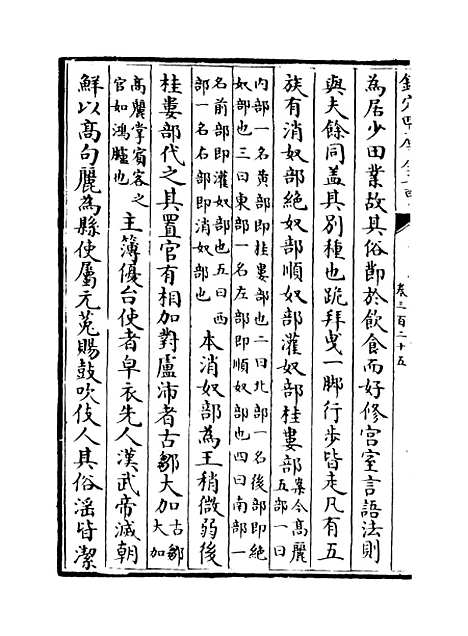 卷三百二十五
為居少田業故其俗節於飲食而好修宮室言語法則
與夫餘同盖其別種也跪拜曵一脚行步皆走凡有五
族有消奴部絶奴部順奴部灌奴部桂婁部
案今髙麗
五部一曰
内部一名黄部即桂婁部也二曰北部一名後部即絶
奴部也三曰東部一名左部即順奴部也四曰南部一
名前部即灌奴部也五曰西
部一名右部即消奴部也
本消奴部為王稍微弱後
桂婁部代之其置官有相加對盧沛者古鄒大加
古鄒
大加
髙麗掌賓客之
官如鴻臚也
主簿優台使者皁衣先人漢武帝滅朝
鮮以髙句麗為縣使屬元菟賜鼓吹伎人其俗淫皆潔